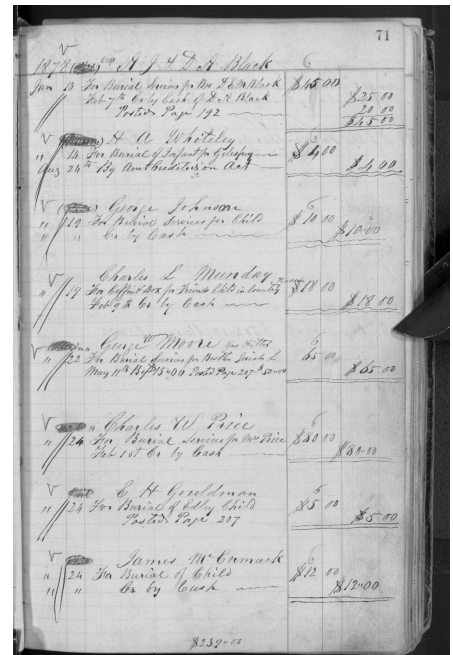 71
1878 A J & D A Black
Jan 13 For Burial Services for Bro D E M Black $45 00
Feb 7th Cr by Cash of D A Black $25 00
Posted Page 192 20 00
$45 00
H A Whiteley
" 14 For Burial of Infant for Gillispy $4 00
Aug 24th By Amt Credited on Act $4 00
George Johnson
" 19 For Burial Services for Child $10 00
" " Cr by Cash $10-00
Charles L Munday
" 19 For Coffin & Box for Friends Child in Country $18 00
Feb 9th Cr by Cash $18 00
George W Moore
" 22 For Burial Services for Brother Josiah L 65 00
May 11th By $15-00 Posted Page 207 $50-00 $65 00
Charles W Price
" 24 For Burial Services for Mrs Price $80 00
Feb 1st Cr by Cash $80-00
E H Gouldman
" 24 For Burial of Edley Child $5 00
Posted Page 207 $5 00
James McCormack
" 24 For Burial of Child $12 00
" " Cr by Cash $12-00
$239-00